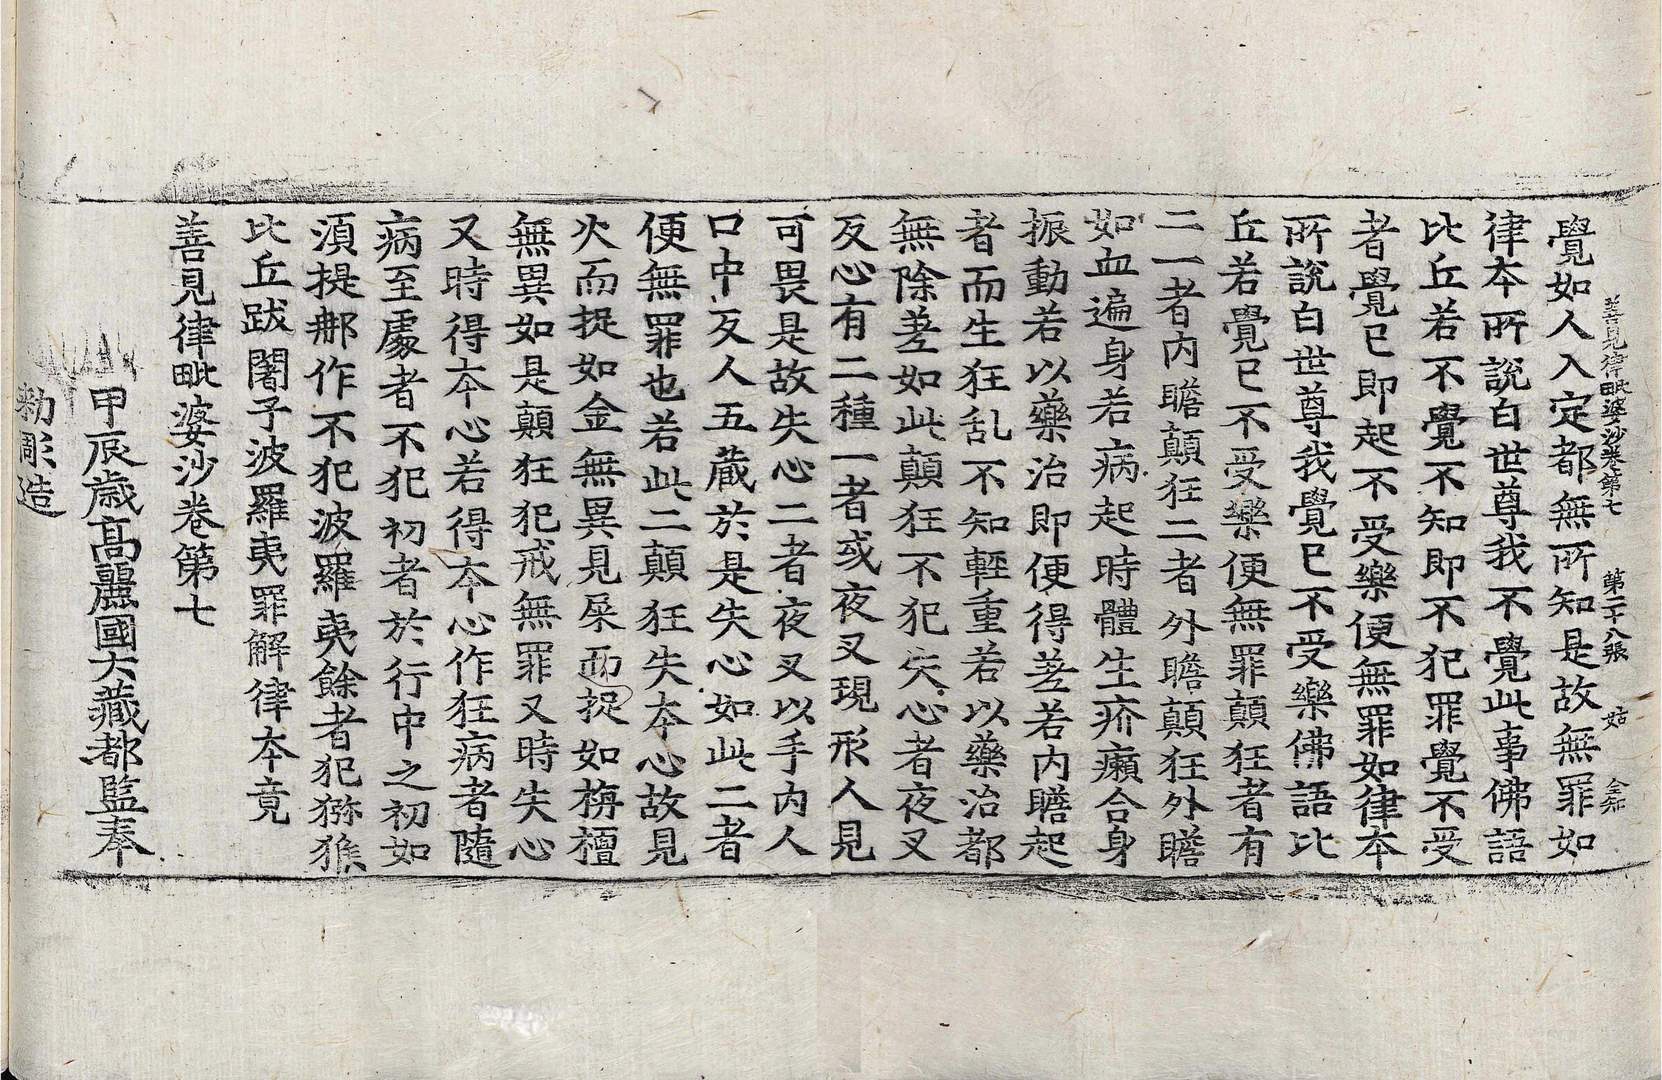 善見律毗婆沙卷第七 第二十八張 姑 仝知
覺如人入定都無所知是故無罪如
律本所說白世尊我不覺此事佛語
比丘若不覺不知即不犯罪覺不受
者覺已即起不受樂便無罪如律本
所說白世尊我覺已不受樂佛語比
丘若覺已不受樂便無罪顚狂者有
二一者內瞻顚狂二者外瞻顚狂外瞻
如血遍身若病起時體生疥癩合身
振動若以藥治即便得差若內瞻起
者而生狂乱不知輕重若以藥治都
無除差如此顚狂不犯失心者夜叉
反心有二種一者或夜叉現形人見
可畏是故失心二者夜叉以手內人
口中反人五藏於是失心如此二者
便無罪也若此二顚狂失本心故見
火而捉如金無異見屎而捉如栴檀
無異如是顚狂犯戒無罪又時失心
又時得本心若得本心作狂病者隨
病至處者不犯初者於行中之初如
須提那作不犯波羅夷餘者犯獼猴
比丘跋闍子波羅夷罪解律本竟
善見律毗婆沙卷第七
甲辰歲高麗國大藏都監奉
勑彫造